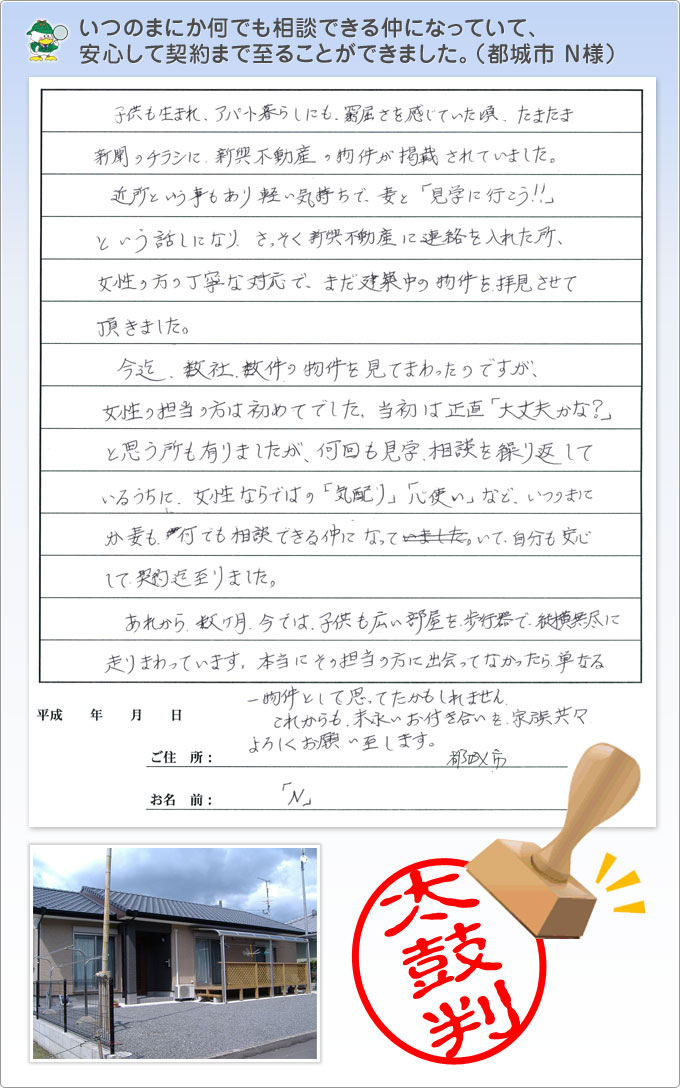 いつのまにか何でも相談できる仲になっていて、
安心して契約まで至ることができました。（都城市 N様）
子供も生まれ、アパート暮らしにも、窮屈さを感じていた頃、たまたま
新聞のチラシに、新興不動産の物件が掲載されていました。
近所という事もあり軽い気持ちで、妻と「見学に行こう!!」
という話しになり、さっそく新興不動産に連絡を入れた所、
女性の方の丁寧な対応で、まだ建築中の物件を拝見させて
頂きました。
今迄、数社、数件の物件を見てまわったのですが、
女性の担当の方は初めてでした。当初は正直「大丈夫かな?」
と思う所も有りましたが、何回も見学、相談を繰り返して
いるうちに、女性ならではの「気配り」「心使い」など、いつのまに
か妻も、何でも相談できる仲になっていました。いて、自分も安心
して、契約迄至りました。
あれから、数ヶ月、今では、子供も広い部屋を、歩行器で、縦横無尽に
走りまわっています。本当にその担当の方に出会ってなかったら、単なる
一物件として思ってたかもしれません。
これからも、末永いお付き合いを、家族共々、
よろしくお願い至します。
平成　年　月　日
ご住　所： 都城市
お名　前： 「N」
太鼓判